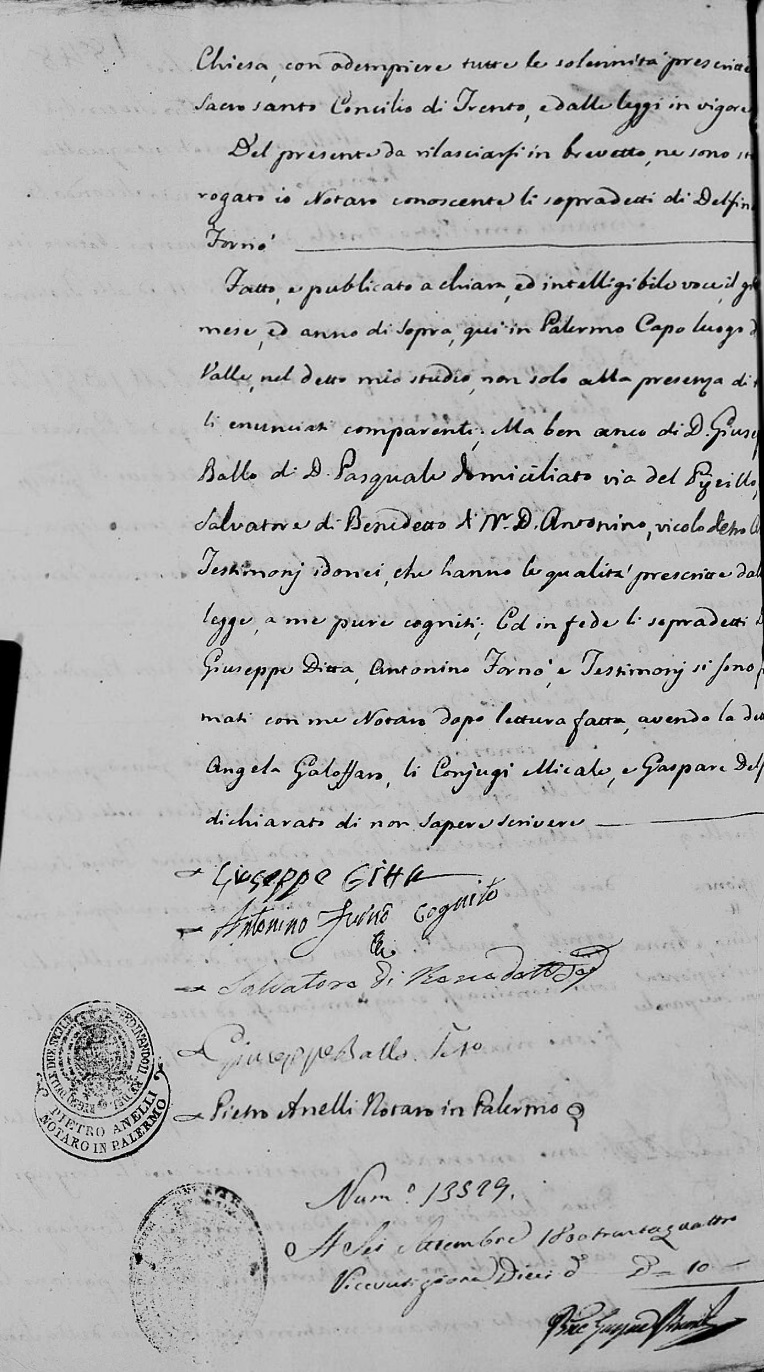 Chiesa, con adempiere tutte le solennità prescritte
Sacrosanto Concilio di Trento, e dalle leggi in vigore
Del presente da rilasciarsi in brevetto, ne sono
rogato io Notaro conoscente li sopradetti di Delfin
Fornò
Fatto, e publicato a chiara, ed intelligibile voce, il
mese, ed anno di sopra, qui in Palermo Capo luogo
Valle, nel detto mio studio, non solo alla presenza di
li enunciati comparenti; Ma ben anco di D. Giusep
Ballo di D. Pasquale domiciliato via del
Salvatore di Benedetto di Nr. D. Antonino, vicolo
Testimonj idonei, che hanno le qualità prescritte dal
legge, a me pure cogniti; Ed in fede li sopradetti
Giuseppe Ditta, Antonino Fornò, e Testimonj si sono
mati con me Notaro dopo lettura fatta, avendo la
Angela Galoffaro, li Conjugi Micale, e Gaspare Delf
dichiarato di non sapere scrivere
Giuseppe Ditta
Antonino Furnò Cognito
Salvatore di Benedetto
Giuseppe Ballo
Pietro Anelli Notaro in Palermo
PIETRO ANELLI
NOTARO IN PALERMO
Num.o 13529.
A Sei Settembre 1800trentaquattro
Dieci 10